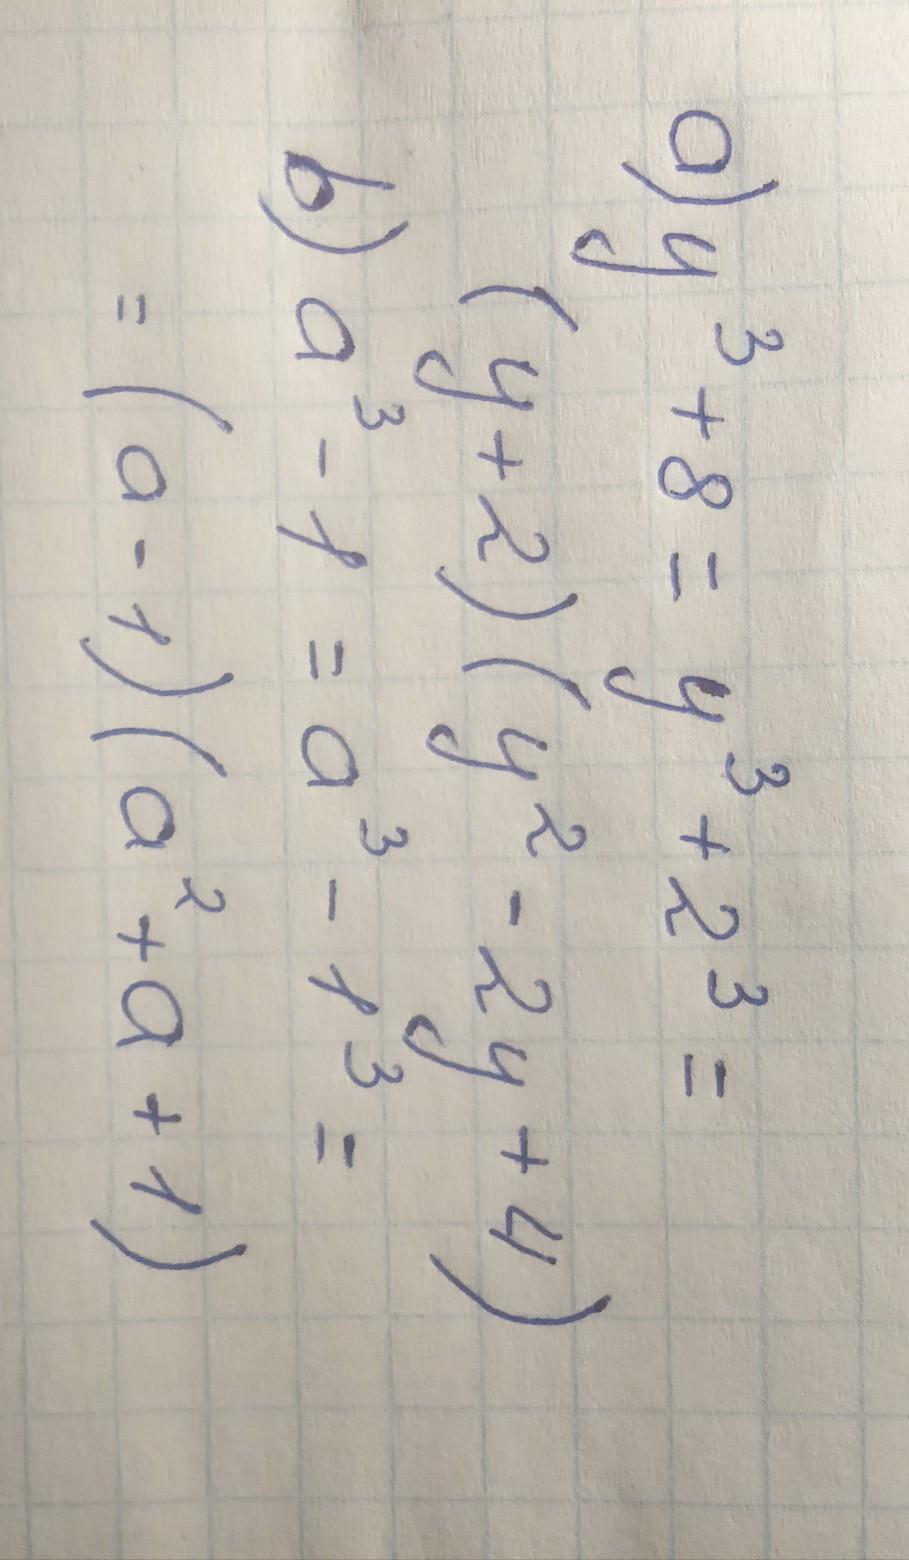 a) y³ + 8 = y³ + 2³ =
(y + 2) (y² - 2y + 4)
b) a³ - 1 = a³ - 1³ =
= (a - 1) (a² + a + 1)